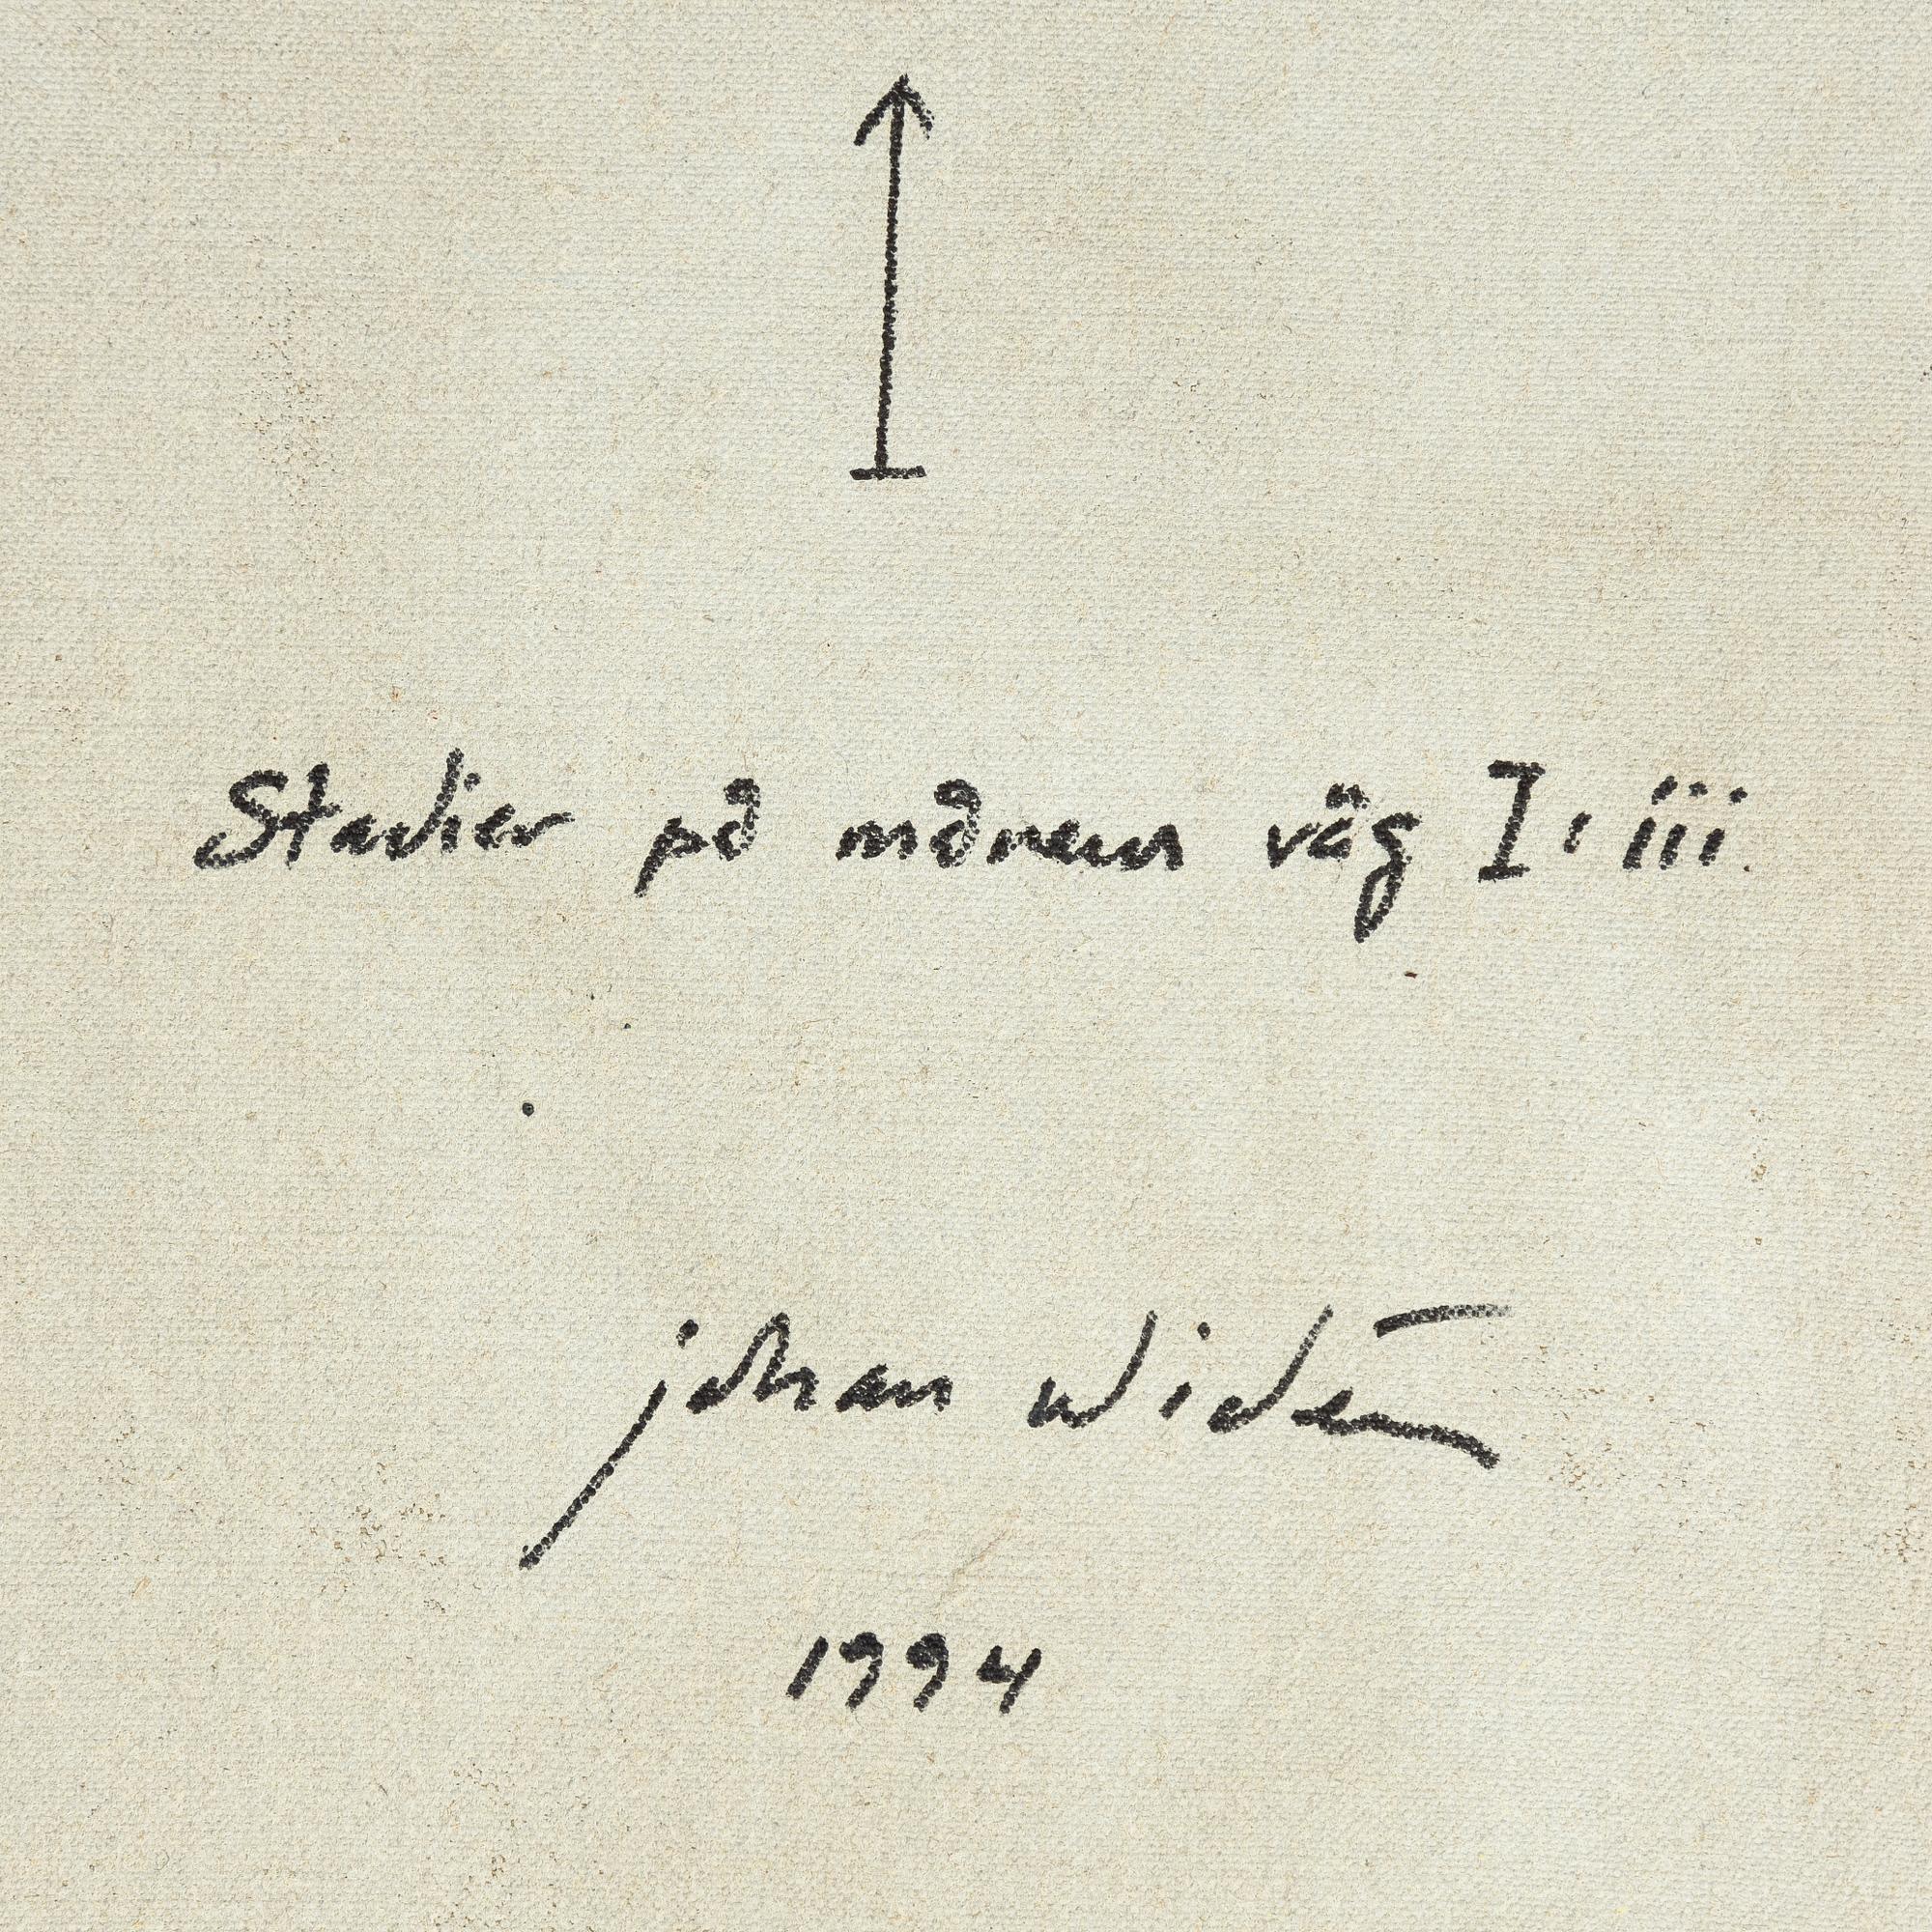 Stadier på månens väg I, iii.
johan widén
1994